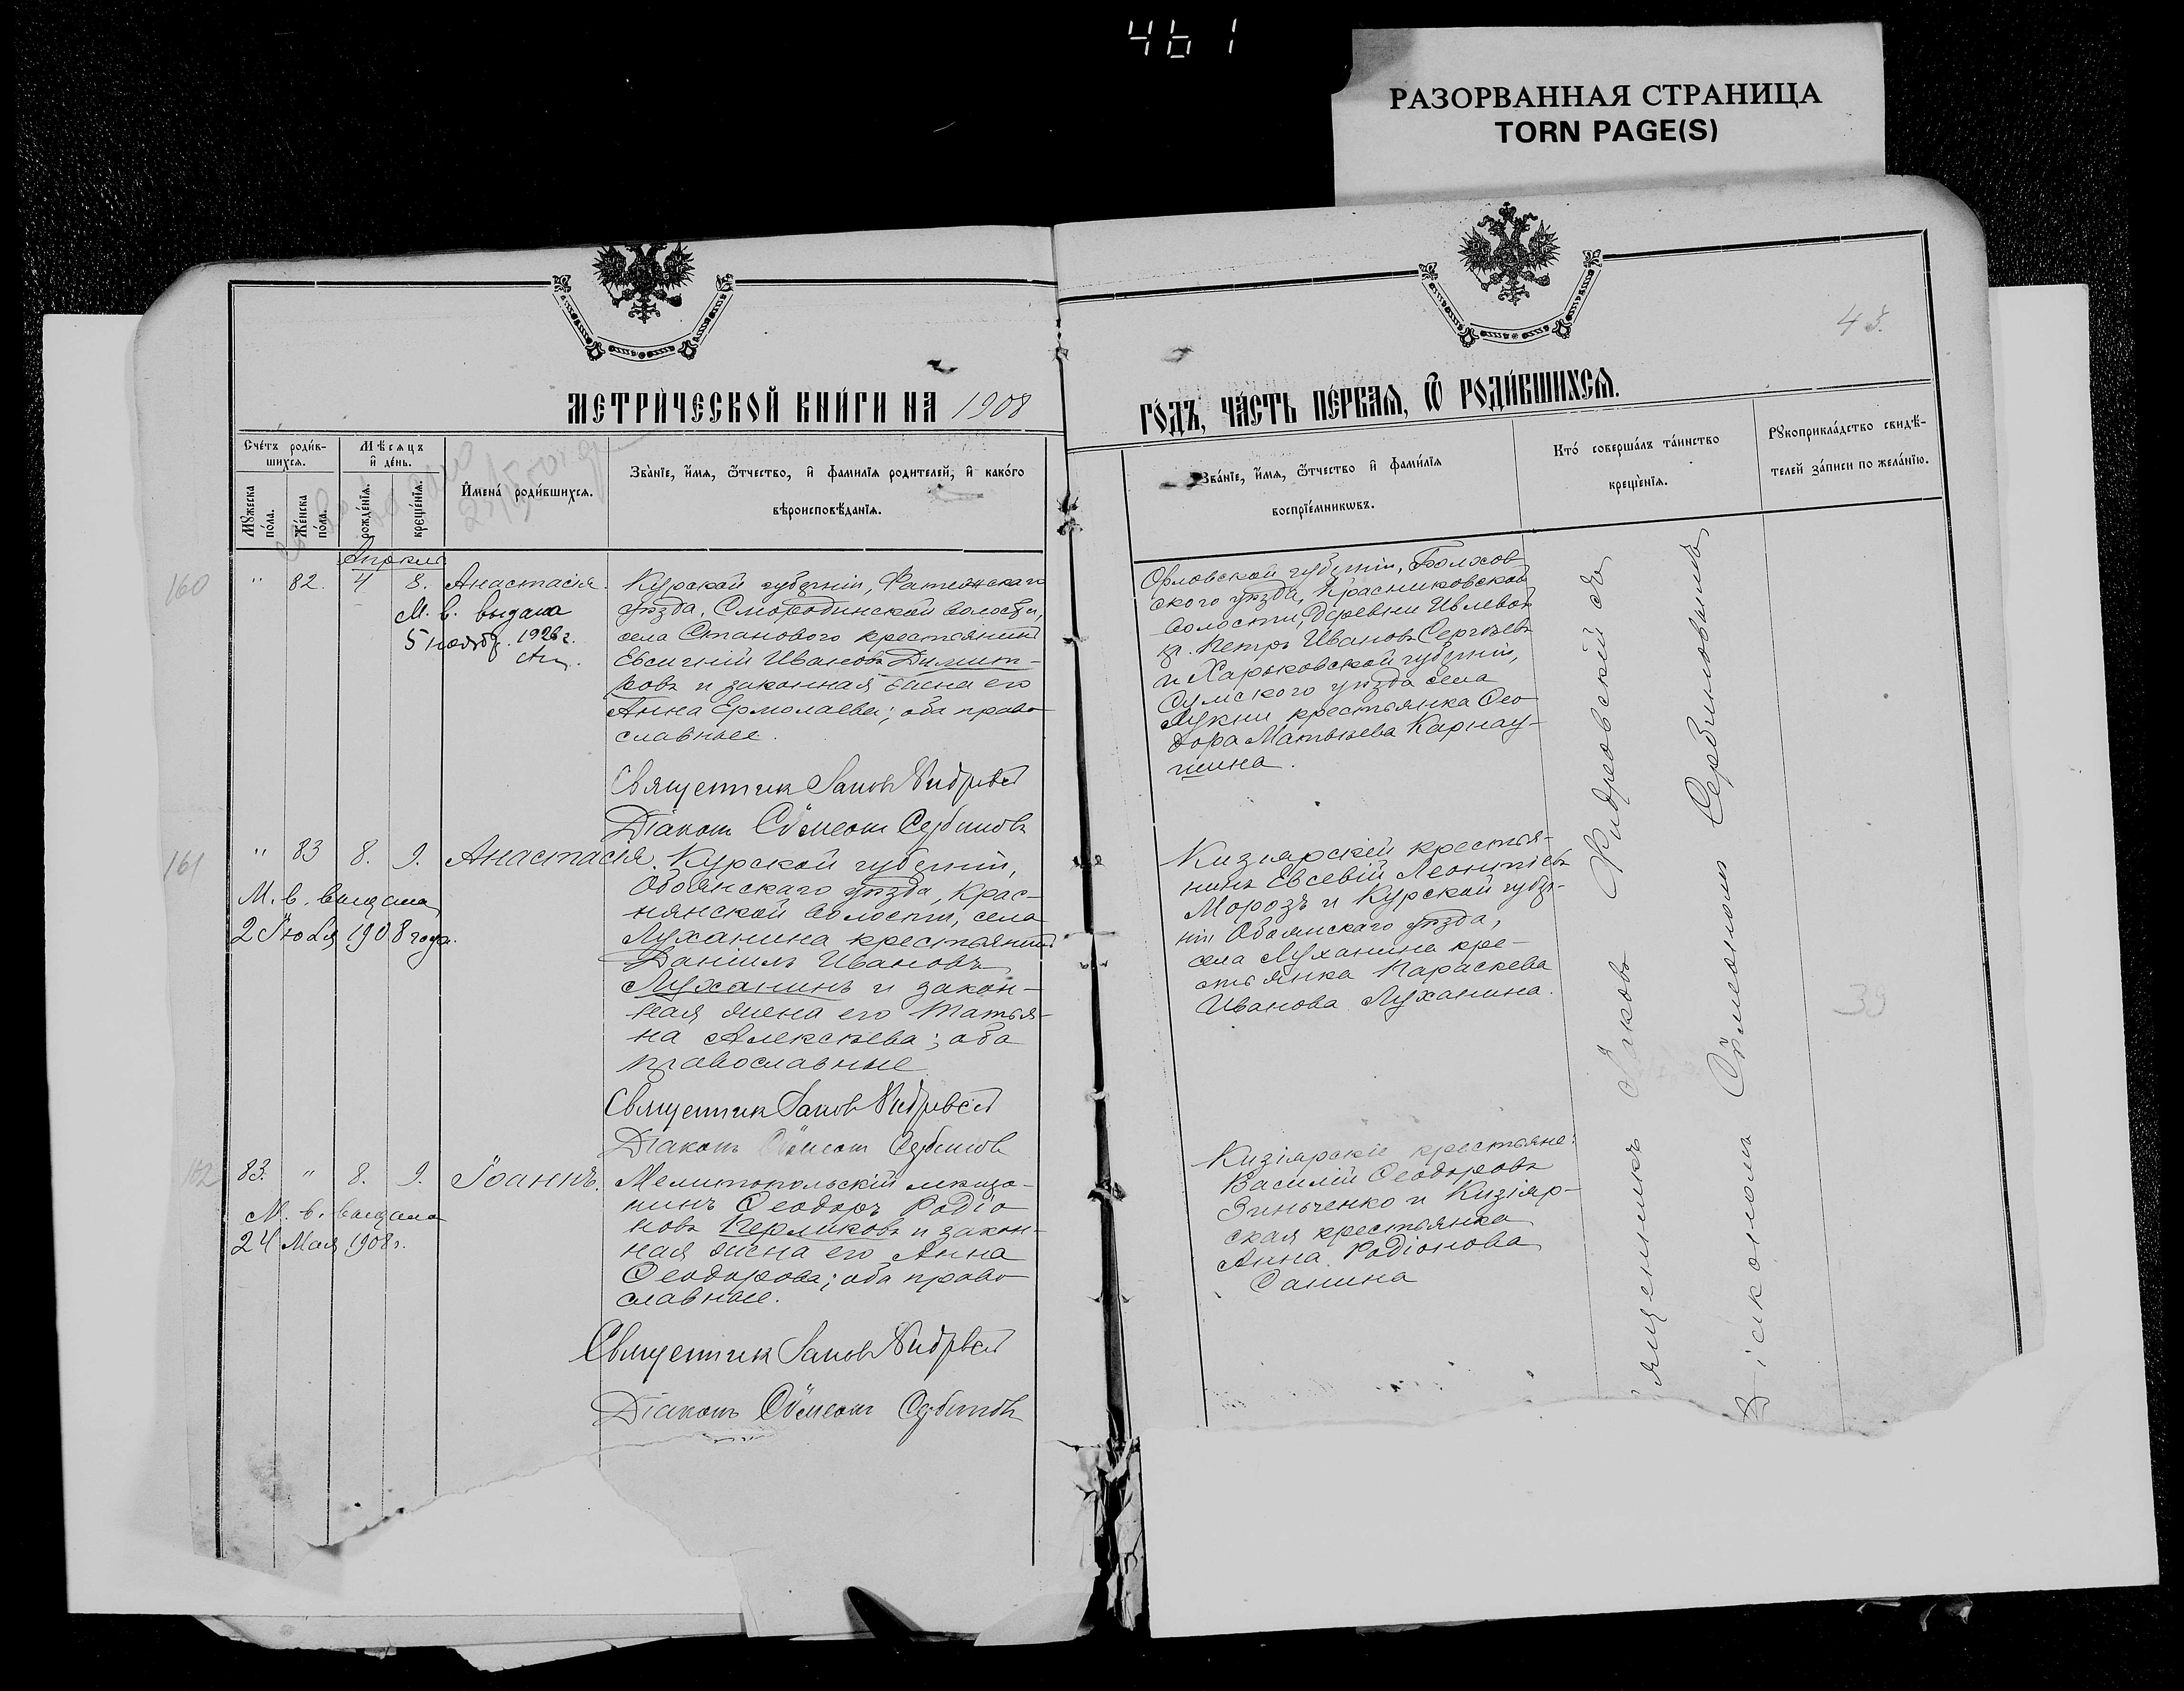 461
РАЗОРВАННАЯ СТРАНИЦА
TORN PAGE(S)
43.
МЕТРИЧЕСКОЙ КНИГИ НА 1908
ГОДЪ, ЧАСТЬ ПЕРВАЯ, Ѿ РОДИВШИХСЯ.
Счетъ родив-
шихся.
Мужеска
пола.
Женска
пола.
Мѣсяцъ
и день.
рожденія.
крещенія.
Имена родившихся.
Званіе, имя, ѿтчество, и фамилія родителей, и какого
вѣроисповѣданія.
Званіе, имя, ѿтчество и фамилія
воспріемникѡвъ.
Кто совершалъ таинство
крещенія.
Рукоприкладство свидѣ-
телей записи по желанію.
Апрѣль
160
" 82. 4 8. Анастасія.
М. в. выдана
5 ноябр. 1926 г.
Курской губерніи, Фатежскаго
уѣзда, Смородинской волости,
села Станового крестьянинъ
Евсигній Ивановъ Димит-
ровъ и законная жена его
Анна Ермолаева; оба право-
славные.
Священник Іаков
Діаконъ Сѵмеонъ Сербинов
Орловской губерніи, Болхов-
ского уѣзда, Красниковской
волости, Деревни Ивлевой
кр. Петръ Ивановъ Сергѣевъ
и Харьковской губерніи,
Сумского уѣзда села
Луки крестьянка Ѳео-
дора Матвѣева Карнау-
шина.
161
" 83 8. 9. Анастасія.
М. в. выдана
2 Іюля 1908 года.
Курской губерніи,
Обоянскаго уѣзда, Крас-
нянской волости, села
Луханина крестьянинъ
Даніилъ Ивановъ
Луханинъ и закон-
ная жена его Татья-
на Алексѣева; оба
православные
Священник Іаков
Діаконъ Сѵмеонъ Сербинов
Кизіярскій крестья-
нинъ Евсевій Леонтіевъ
Морозъ и Курской губер-
ніи Обоянскаго уѣзда,
села Луханина кре-
стьянка Параскева
Иванова Луханина.
39
162
83. " 8. 9. Іоаннъ.
М. в. выдана
24 Мая 1908 г.
Мелитопольскій мѣща-
нинъ Ѳеодоръ Родіо-
новъ Перликовъ и закон-
ная жена его Анна
Ѳеодорова; оба право-
славные.
Священник Іаков
Діаконъ Сѵмеонъ Сербинов
Кизіярскіе крестьяне:
Василій Ѳеодоровъ
Зинченко и Кизіяр-
ская крестьянка
Анна Родіонова
Санина
ященникъ Іаковъ
Діакономъ Сѵмеономъ Сербиновымъ